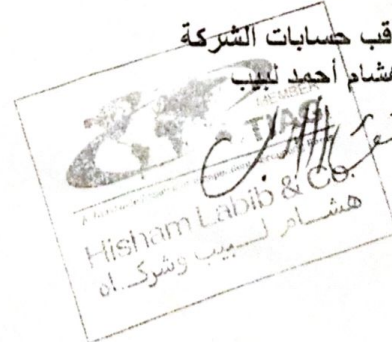 قب حسابات الشركة
شام أحمد لبيب
MEMBER
TIAG
Hisham Labib & Co.
هشام لبيب وشركاه